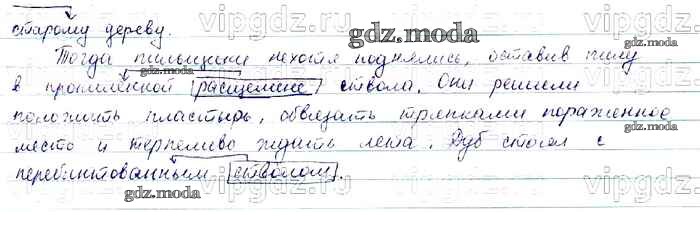 старому дереву.
Тогда пильщики нехотя поднялись, оставив пилу
в пропиленной расщелине ствола. Они решили
положить пластырь, обвязать тряпками пораженное
место и терпеливо ждать лета. Дуб стоял с
перебинтованным стволом.
gdz.moda
gdz.moda
gdz.moda
gdz.moda
vipgdz.moda
vipgdz
vipgdz
vipgdz